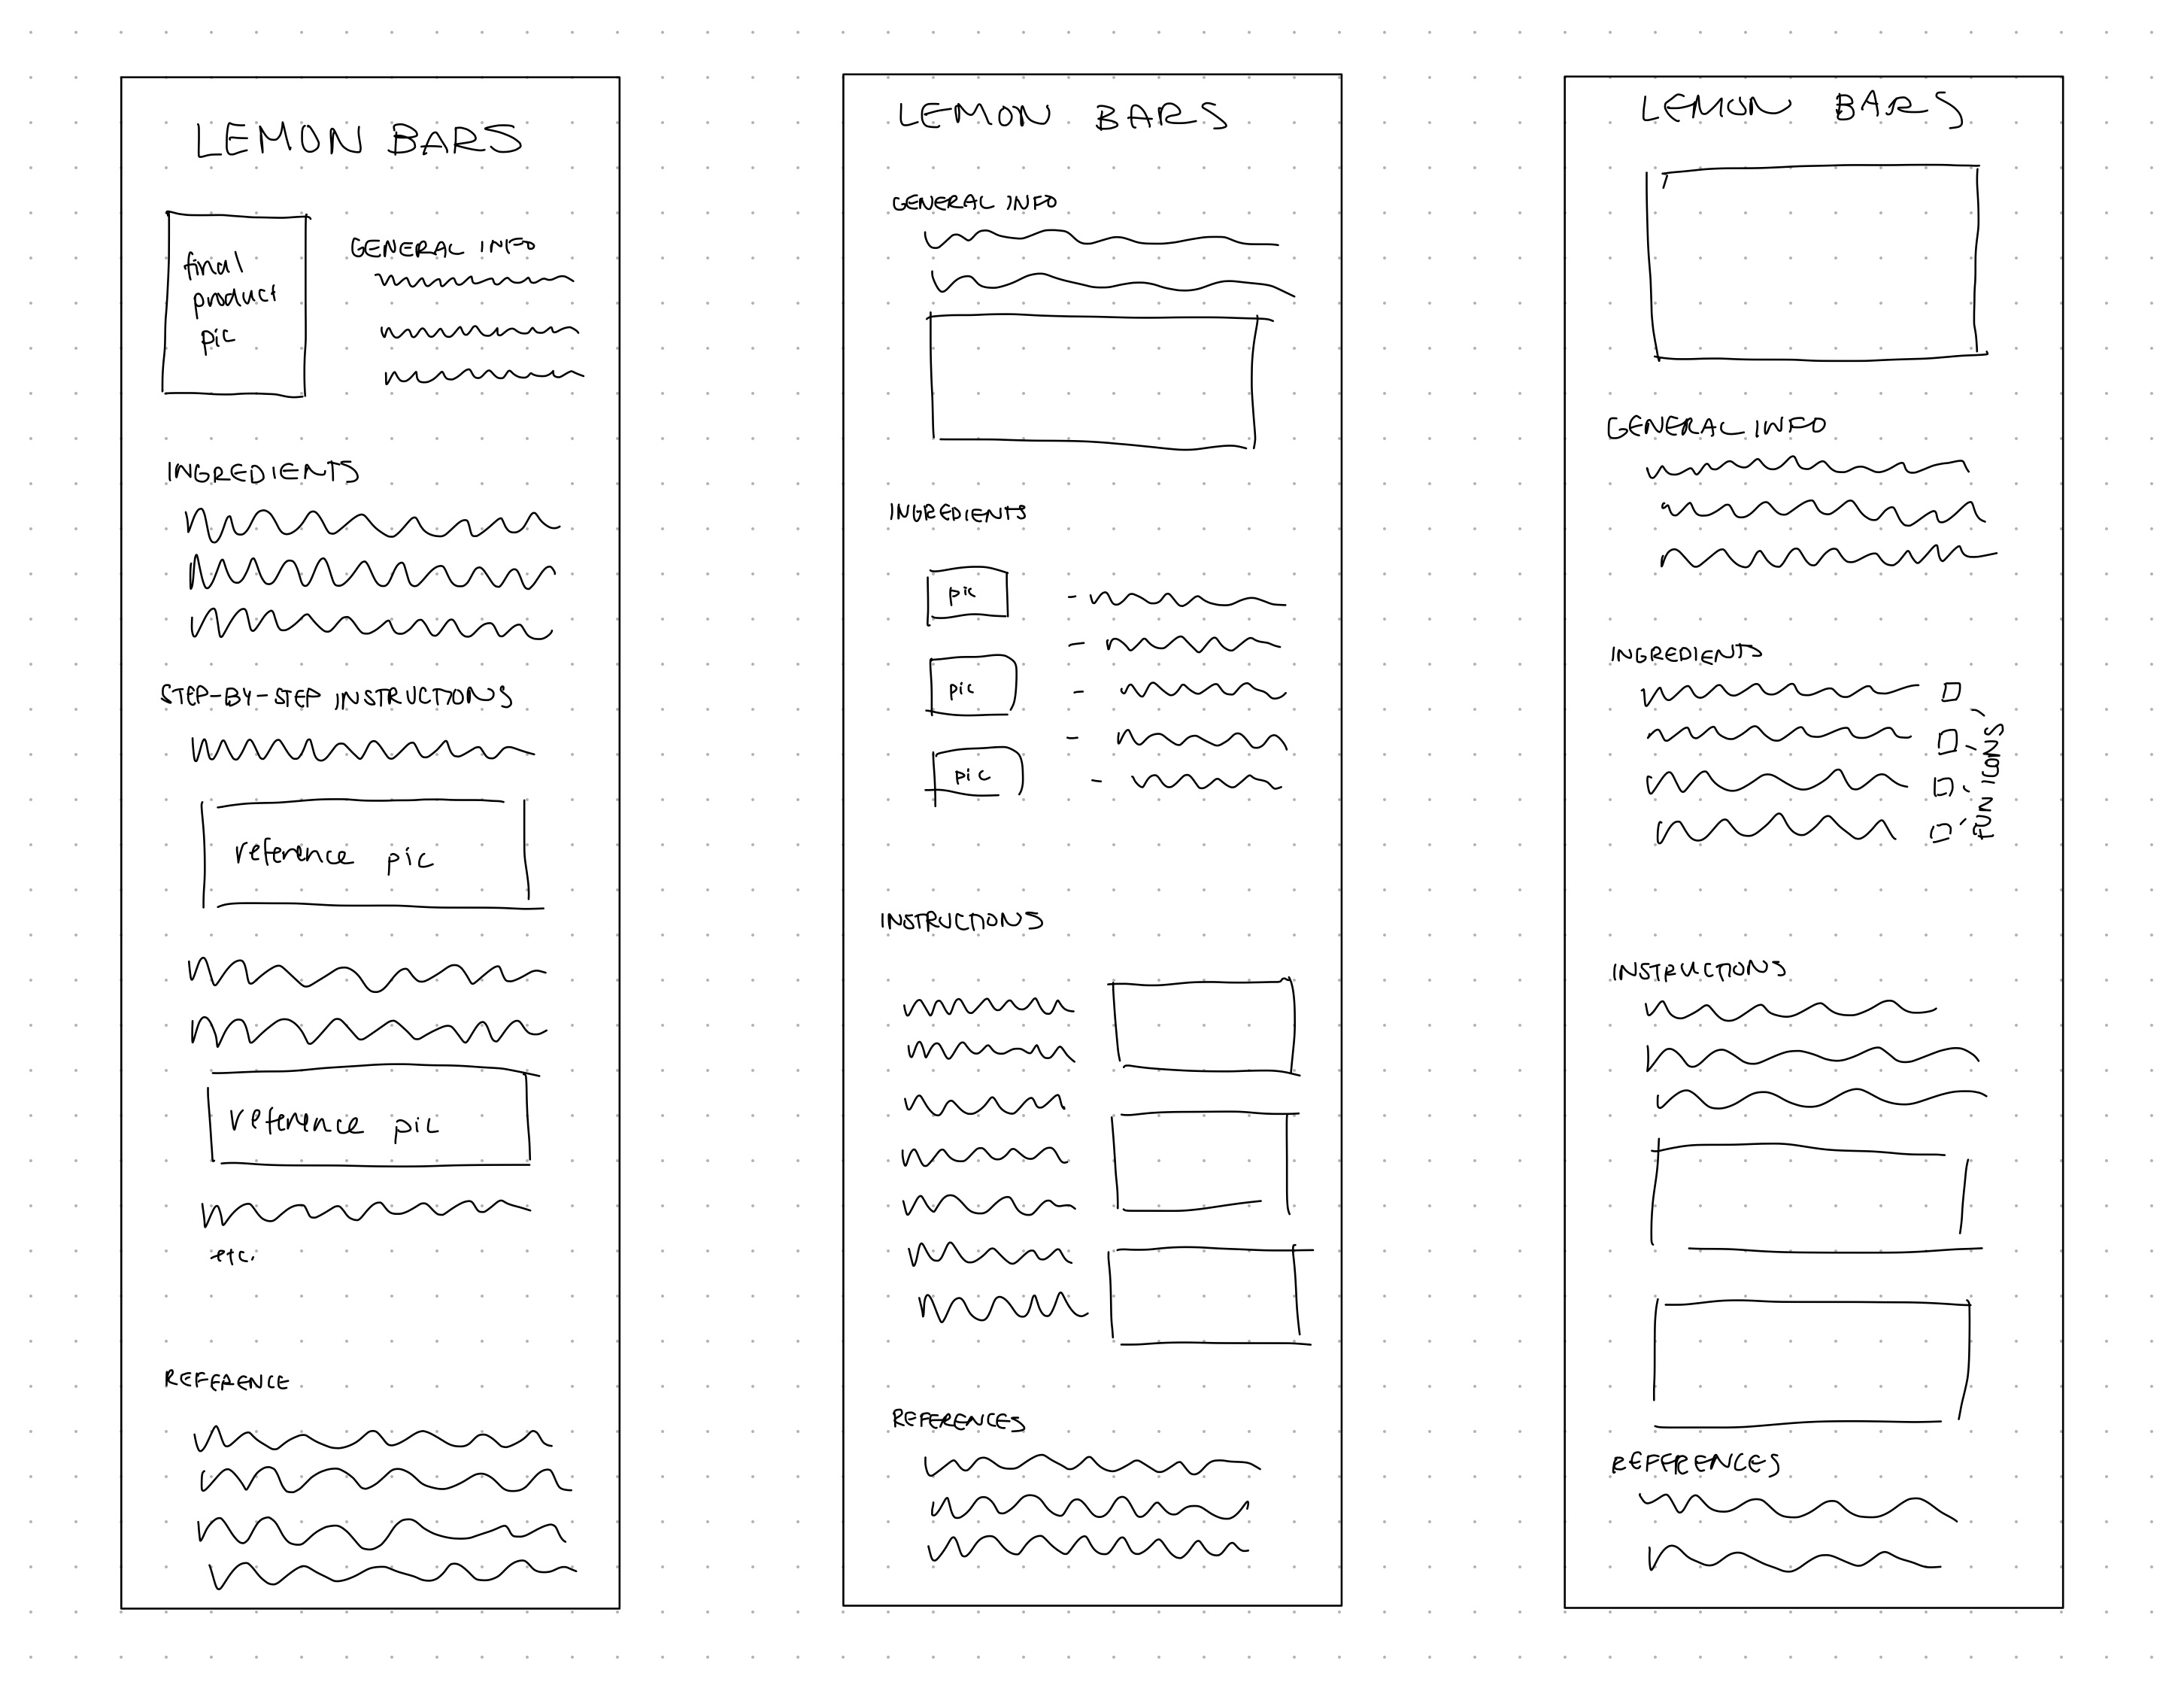 LEMON BARS
final
product
pic
GENERAL INFO
INGREDIENTS
STEP-BY-STEP INSTRUCTIONS
reference pic
reference pic
etc.
REFERENCE
LEMON BARS
GENERAL INFO
INGREDIENTS
pic
pic
pic
INSTRUCTIONS
REFERENCES
LEMON BARS
GENERAL INFO
INGREDIENTS
FUN ICONS
INSTRUCTIONS
REFERENCES